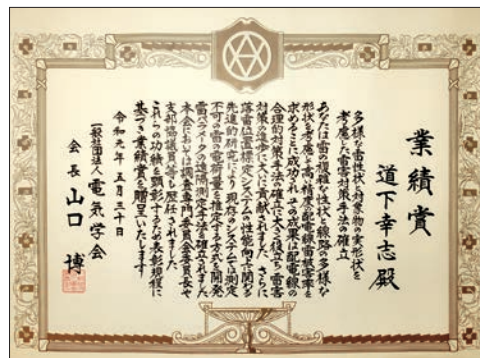 業績賞
道下幸志殿
多様な雷性状と対象物の実形状を
考慮した雷害対策手法の確立
あなたは雷の複雑な性状や線路の多様な
形状を考慮した高精度配電線雷被害率を
求めることに成功され その成果は配電線の
合理的対策手法の確立に大きく役立ち雷害
対策の進歩に大いに貢献されました さらに
落雷位置標定システムの性能向上に関わる
先進的研究により現存のシステムでは測定
不可の雷の電荷量を推定する方式を開発
雷パラメータの遠隔測定手法を確立されました
本会においては調査専門委員会委員長や
支部協議員等も歴任されました
これらの功績を顕彰するため表彰規程に
基づき業績賞を贈呈いたします
令和元年五月三十日
一般社団法人電気学会
会長 山口 博